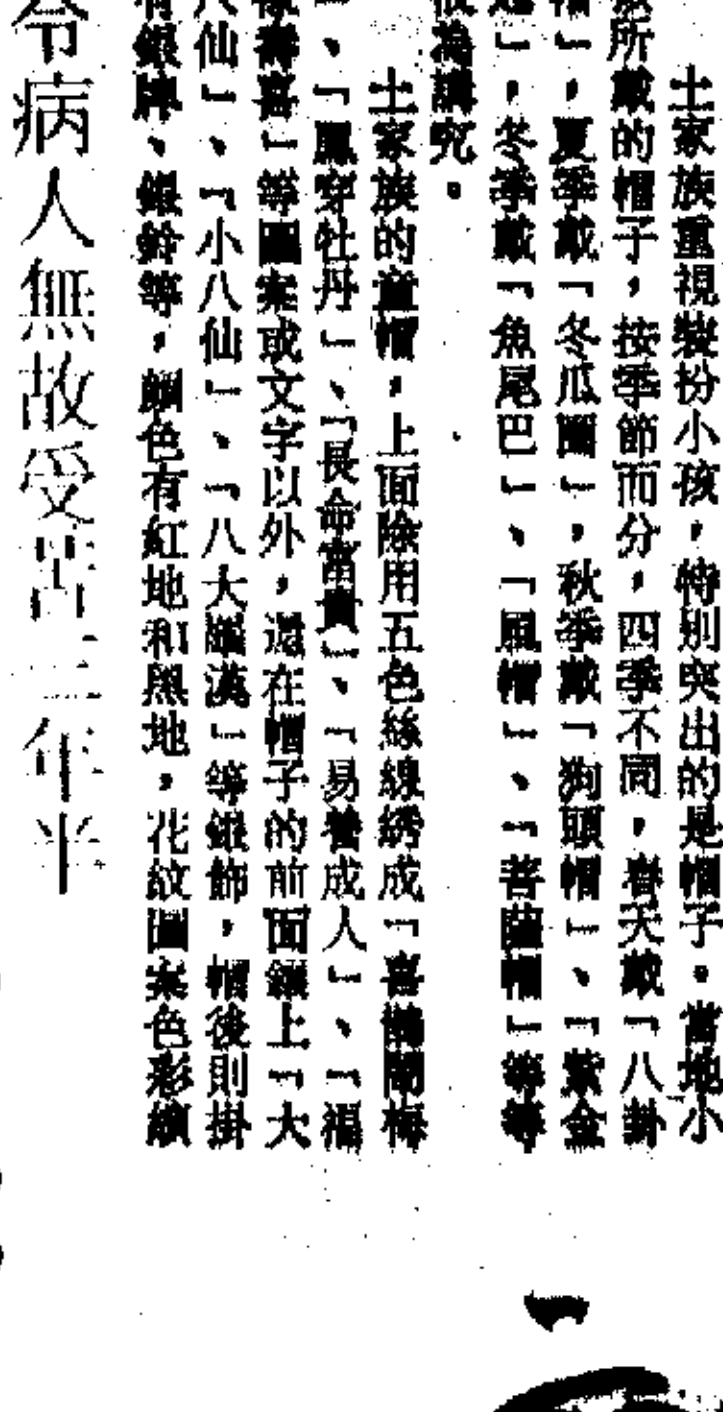 土家族重視裝扮小孩，特別突出的是帽子。當地小
所戴的帽子，按季節而分，四季不同，春天戴「八卦
帽」，夏季戴「冬瓜圈」，秋季戴「狗頭帽」、「紫金
」，冬季戴「魚尾巴」、「風帽」、「菩薩帽」等等
很為講究。
土家族的童帽，上面除用五色絲線綉成「喜鵲鬧梅
」、「鳳穿牡丹」、「長命富貴」、「易養成人」、「福
祿壽喜」等圖案或文字以外，還在帽子的前面鑲上「大
八仙」、「小八仙」、「八大羅漢」等銀飾，帽後則掛
有銀牌、銀鈴等，顏色有紅地和黑地，花紋圖案色彩繽
令病人無故受苦三年半